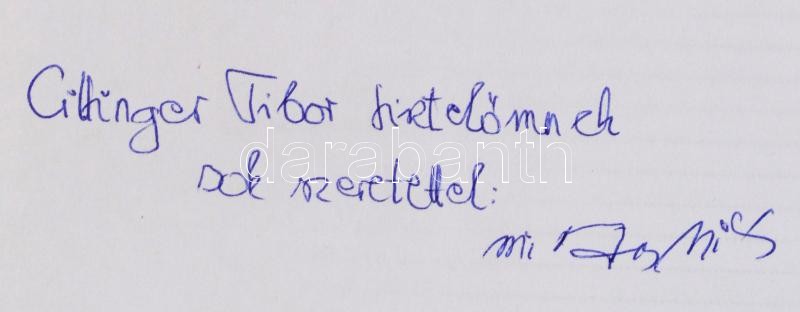 Cittinger Tibor tisztelőmnek
sok szeretettel:
darabanth